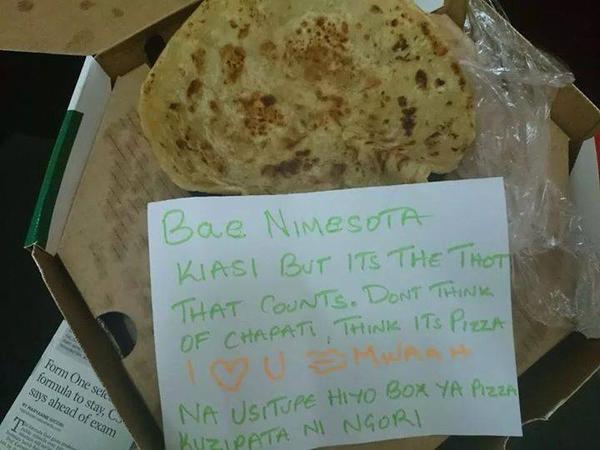 Bae NIMESOTA
KIASI BUT ITS THE THOT
THAT COUNTS. DONT THINK
OF CHAPATI, THINK ITS PIZZA
I ♡ U MWAAH
NA USITUPE HIYO BOX YA PIZZA
KUZIPATA NI NGORI
Form One sele
formula to stay, CS
says ahead of exam